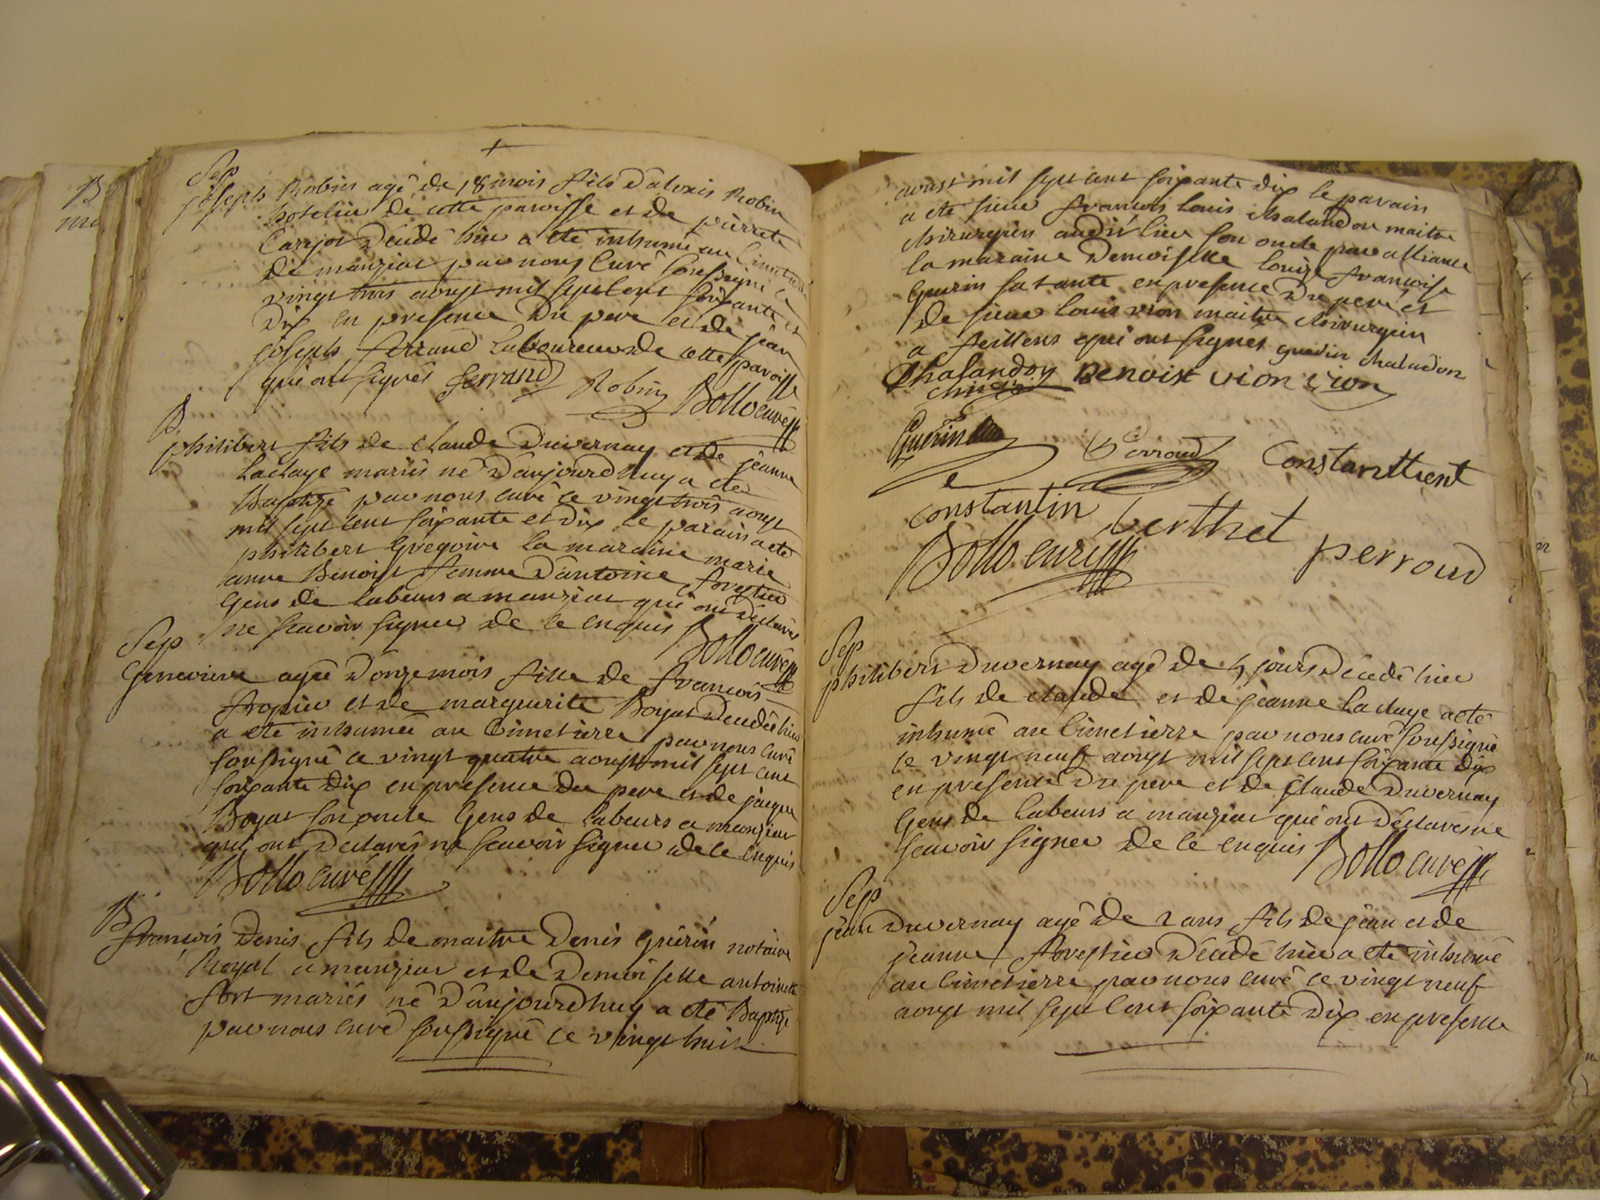 Sep
joseph Robin agé de 18 mois fils d'alexis Robin
hotelier de cette paroisse et de pierrette
Carrjot décédé hier a été inhumé au Cimetiere
de manziat par nous Curé soussigné le
vingt trois aoust mil sept cent soixante et
dix en presence du pere et de jean
joseph ferrand Laboureurs de cette paroisse
qui ont signés ferrand Robin Bollo curé
B
philibert fils de Claude Duvernay et de jeanne
Laclaye mariés né d'aujourdhuy a été
Baptizé par nous curé ce vingt trois aoust
mil sept cent soixante et dix le parain a été
philibert Gregoire la maraine marie
anne Benoist femme d'antoine forestier
Gens de labeurs a manziat qui ont déclarés
ne scavoir signer de ce enquis Bollo curé
Sep
Genevieve agée d'onze mois fille de francois
fropier et de marguerite Boyat décédée hier
a été inhumée au Cimetierre par nous curé
soussigné ce vingt quatre aoust mil sept cent
soixante dix en presence du pere et de jacque
Boyat son oncle Gens de labeurs a manziat
qui ont declarés ne scavoir signer de ce enquis
Bollo curé
B
francois Denis fils de maitre Denis Guérin notaire
Royal a manziat et de Demoiselle antoinette
fort mariés né d'aujourdhuy a été Baptizé
par nous curé soussigné ce vingt huit
aoust mil sept cent soixante dix le parain
a été sieur francois louis chalandon maitre
chirurgien audit lieu son oncle par alliance
la maraine Demoiselle louize francoise
Guerin sa tante en presence du pere et
de sieur louis vion maitre chirurgien
a feillens qui ont signés guerin chaladon
Chalandon Benoist vion vion
chirgi
Guerin
Perroud Constanttient
Constantin berthet
Bollo curé perroud
Sep
philibert Duvernay agé de 5 jours décédé hier
fils de claude et de jeanne Laclaye a été
inhumé au Cimetierre par nous curé soussigné
le vingt neuf aoust mil sept cent soixante dix
en presence du pere et de Claude Duvernay
Gens de labeurs a manziat qui ont déclarés ne
scavoir signer de ce enquis Bollo curé
Sep
jean Duvernay agé de 2 ans fils de jean et de
jeanne forestier décédé hier a été inhumé
au Cimetierre par nous curé ce vingt neuf
aoust mil sept cent soixante dix en presence